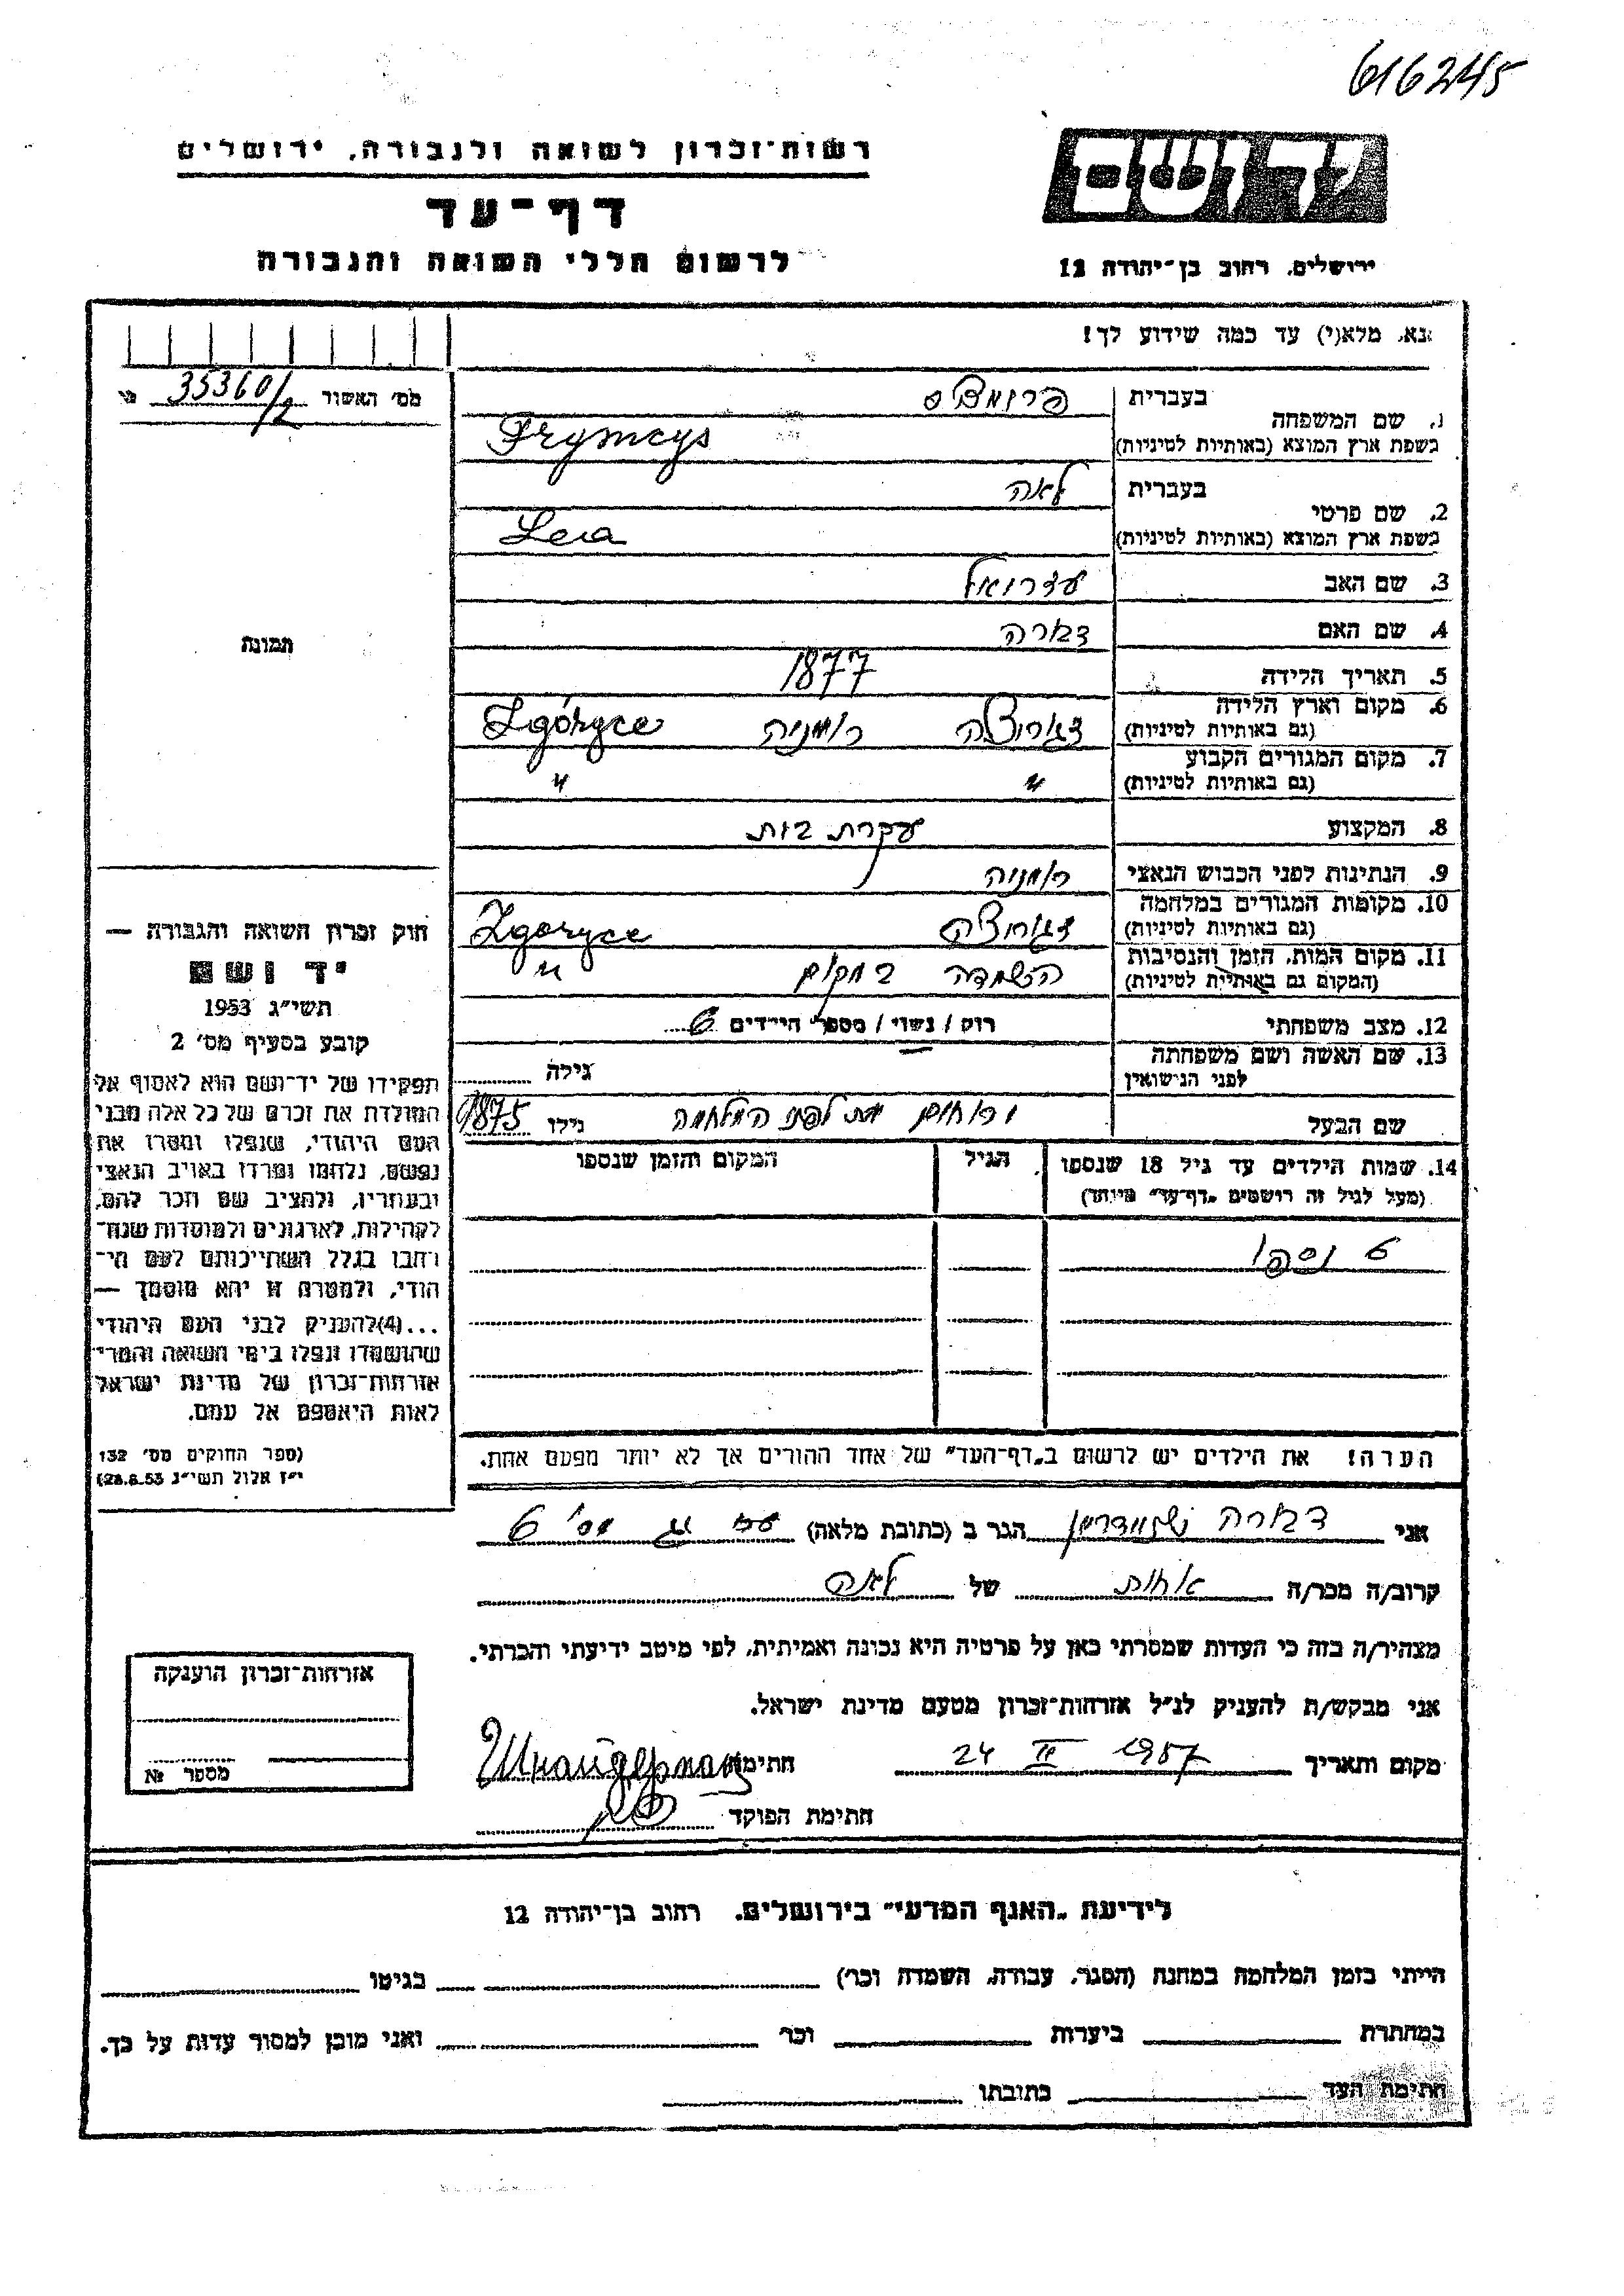 616245
רשות־זכרון לשואה ולגבורה, ירושלים
ידושם
דף־עד
לרשום חללי השואה והגבורה
ירושלים, רחוב בן־יהודה 12
נא, מלא(י) עד כמה שידוע לך!
מס׳ האשור 35360/2
1. שם המשפחה
בעברית
בשפת ארץ המוצא (באותיות לטיניות) Frymcys
2. שם פרטי
בעברית לאה
בשפת ארץ המוצא (באותיות לטיניות) Leia
3. שם האב
4. שם האם
5. תאריך הלידה 1877
6. מקום וארץ הלידה רומניה Zgóryce
(גם באותיות לטיניות)
7. מקום המגורים הקבוע " "
(גם באותיות לטיניות)
8. המקצוע עקרת בית
9. הנתינות לפני הכבוש הנאצי רומניה
10. מקומות המגורים במלחמה Zgoryce
(גם באותיות לטיניות)
11. מקום המות, הזמן והנסיבות במקום "
(המקום גם באותיות לטיניות)
12. מצב משפחתי רווק / נשוי / מספר הילדים 6
13. שם האשה ושם משפחתה
לפני הנישואין גילה
שם הבעל ירוחם מת לפני המלחמה גילו 1875
14. שמות הילדים עד גיל 18 שנספו הגיל המקום והזמן שנספו
(מעל לגיל זה רושמים „דף־עד״ מיוחד)
6 נספו
הערה! את הילדים יש לרשום ב„דף־העד״ של אחד ההורים אך לא יותר מפעם אחת.
תמונה
חוק זכרון השואה והגבורה —
יד ושם
תשי״ג 1953
קובע בסעיף מס׳ 2
תפקידו של יד־ושם הוא לאסוף אל
המולדת את זכרם של כל אלה מבני
העם היהודי, שנפלו ומסרו את
נפשם, נלחמו ומרדו באויב הנאצי
ובעוזריו, ולהציב שם וזכר להם,
לקהילות, לארגונים ולמוסדות שנח־
רבו בגלל השתייכותם לעם הי־
הודי, ולמטרם זו יהא מוסמך —
...(4)להעניק לבני העם היהודי
שהושמדו ונפלו בימי השואה והמרי־
אזרחות־זכרון של מדינת ישראל
לאות היאספם אל עמם.
(ספר החוקים מס׳ 132
י״ז אלול תשי״ג 28.8.53)
אני הגר ב (כתובת מלאה) מס׳ 6
קרוב/ה מכר/ה אחות של לאה
מצהיר/ה בזה כי העדות שמסרתי כאן על פרטיה היא נכונה ואמיתית, לפי מיטב ידיעתי והכרתי.
אני מבקש/ת להעניק לנ״ל אזרחות־זכרון מטעם מדינת ישראל.
מקום ותאריך 24 II 1957 חתימה Шнайдерман
חתימת הפוקד
אזרחות־זכרון הוענקה
מספר №
לידיעת „האגף המדעי״ בירושלים. רחוב בן־יהודה 12
הייתי בזמן המלחמה במחנה (הסגר, עבודה, השמדה וכו׳) בגיטו
במחתרת ביערות וכו׳ ואני מוכן למסור עדות על כך.
חתימת העד כתובתו